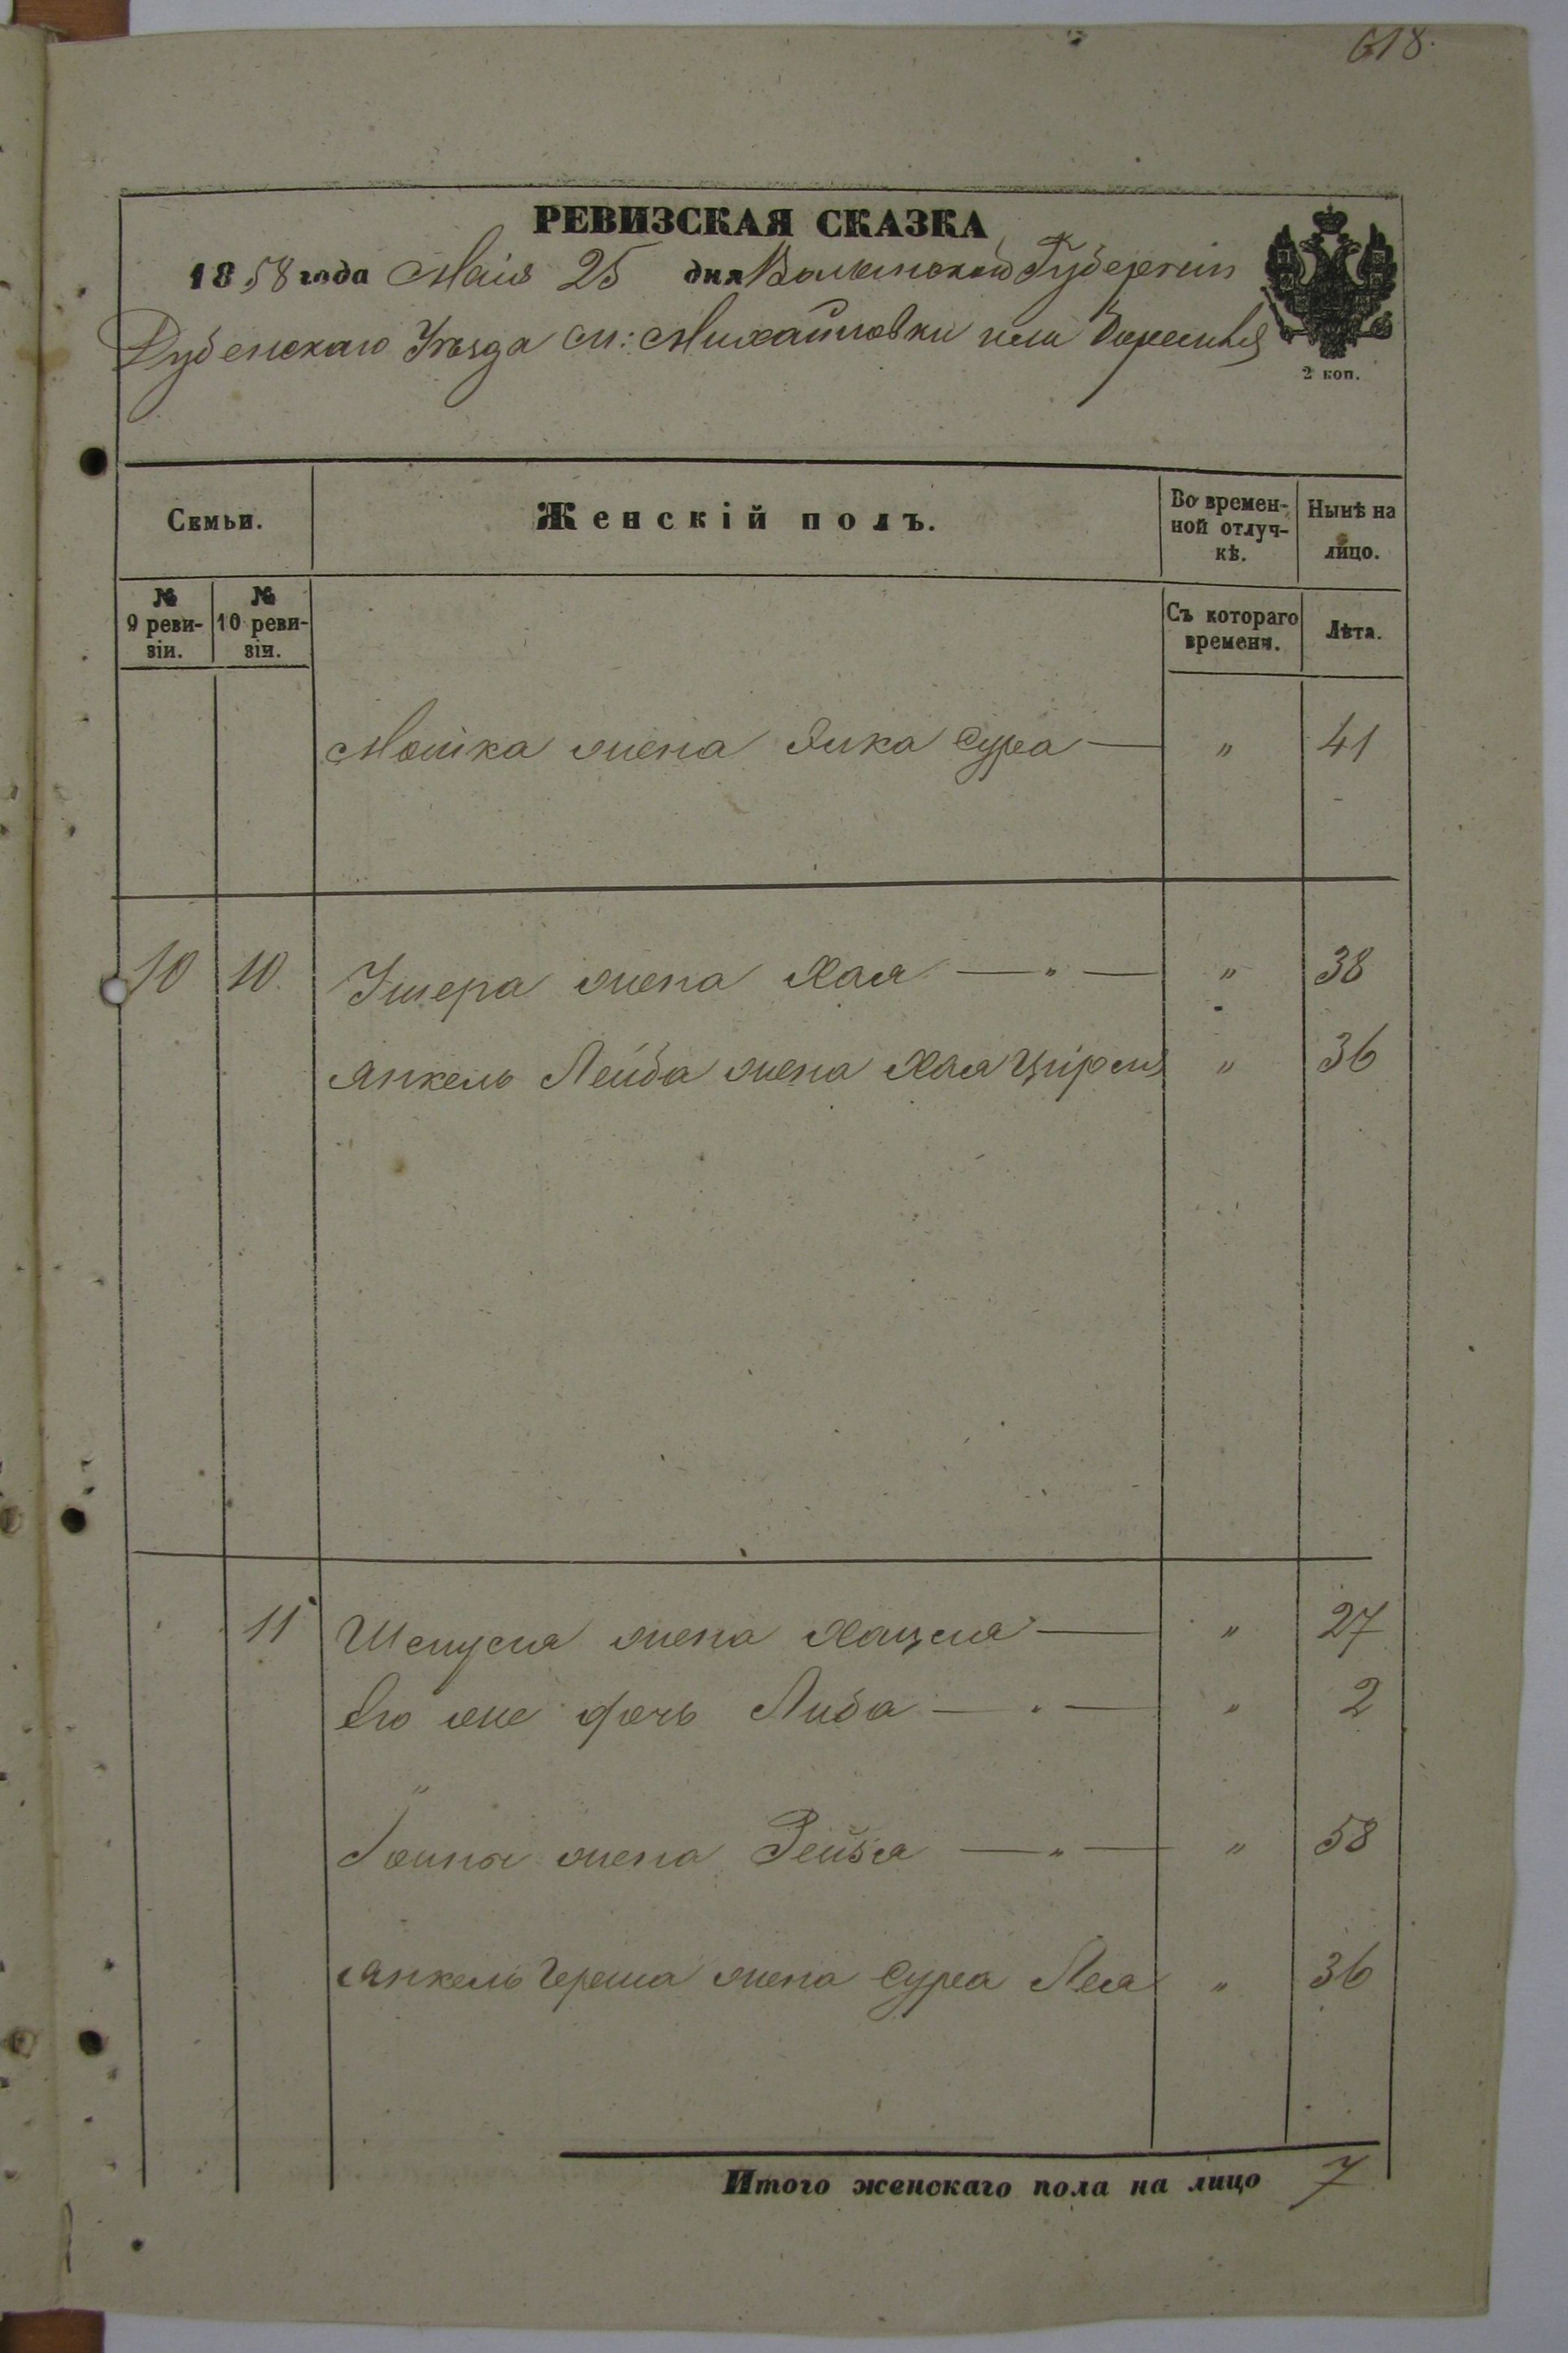 618.
РЕВИЗСКАЯ СКАЗКА
1858 года Маія 25 дня Волынской Губерніи
Дубенскаго Уѣзда м: Михайловки или
2 коп.
Семьи.
Женскій полъ.
Во временной отлучкѣ.
Нынѣ на лицо.
№ 9 ревизіи.
№ 10 ревизіи.
Съ котораго времени.
Лѣта.
Мошка жена Сура — " 41
10 10. Ушера жена Хая — " — " 38
Янкель Лейба жена Хая Цірля " 36
11 Шмуля жена Хацля — " 27
Его же дочь Либа — " — " 2
"
жена Рейзя — " — " 58
Янкель Герша жена Сура Лея " 36
Итого женскаго пола на лицо 7